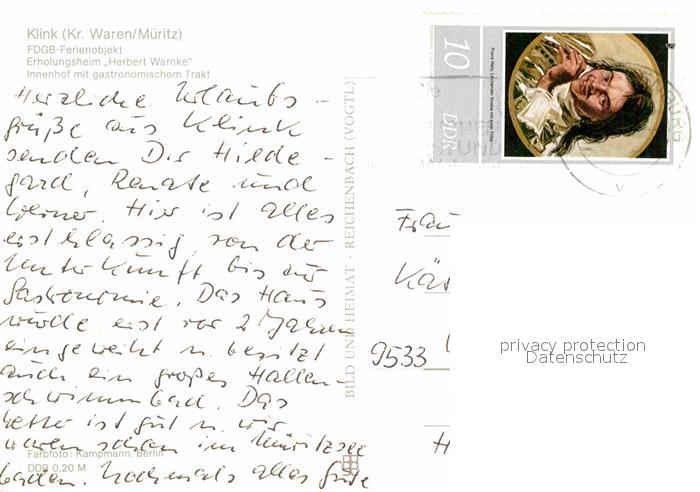 Klink (Kr. Waren/Müritz)
FDGB-Ferienobjekt
Erholungsheim „Herbert Warnke"
Innenhof mit gastronomischem Trakt
Herzliche Urlaubs-
grüße aus Klink
senden Dir Hilde-
gard, Renate und
Werner. Hier ist alles
erstklassig, von der
Unterkunft bis zur
Gastronomie. Das Haus
wurde erst vor 2 Jahren
eingeweiht u. besitzt
auch ein großes Hallen-
schwimmbad. Das
Wetter ist gut u. wir
waren schon im Müritzsee
baden. Nochmals alles Gute
Farbfoto: Kampmann, Berlin
DDR 0,20 M
BILD UND HEIMAT · REICHENBACH (VOGTL)
10
DDR
Frau
Käs
9533
H
privacy protection
Datenschutz